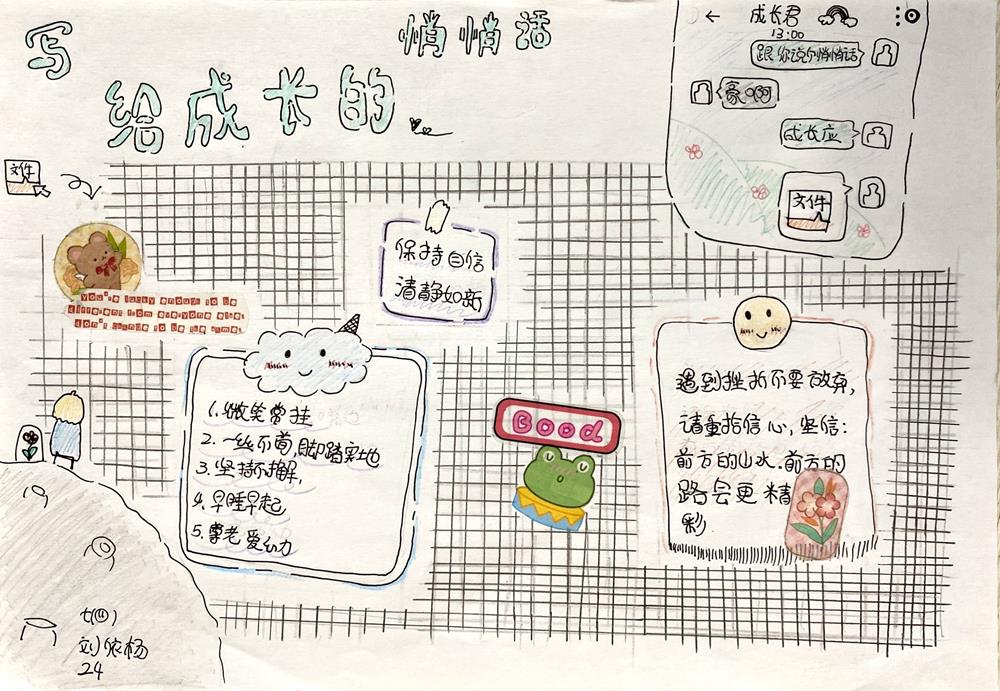 写
给成长的
悄悄话
成长君
13:00
跟你说个悄悄话
豪啊
成长应
文件
文件
保持自信
清静如新
you're lucky enough to be
different from everyone else,
don't change to be the same.
1.微笑常挂
2.一丝不苟,脚踏实地
3.坚持不懈,
4.早睡早起
5.尊老爱幼
Good
遇到挫折不要放弃,
请重拾信心,坚信:
前方的山水.前方的
路会更精
彩.
七(四)
刘依杨
24